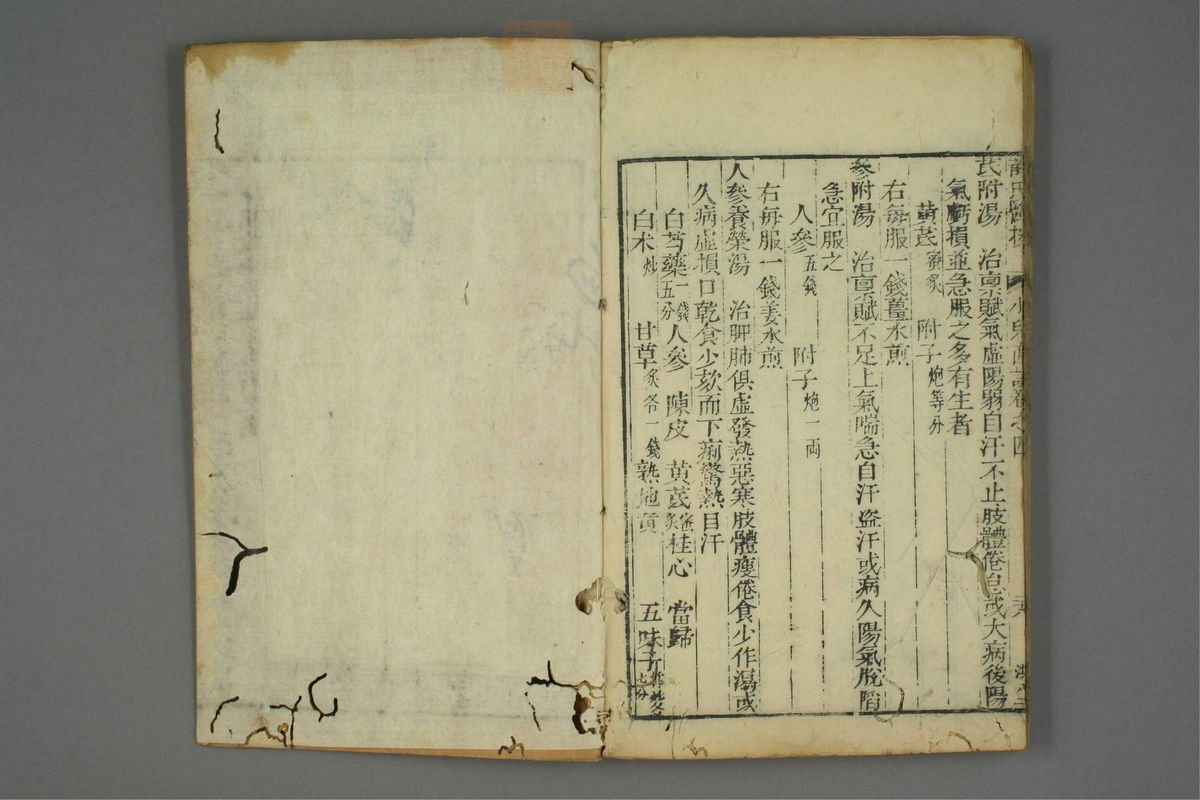 芪附湯　治稟賦氣虛陽弱自汗不止肢體倦怠或大病後陽
氣虧損並急服之多有生者
黄芪蜜炙　附子炮等分
右每服一錢薑水煎
參附湯　治稟賦不足上氣喘急自汗盜汗或病久陽氣脫陷
急宜服之
人參五錢　附子炮一両
右每服一錢姜水煎
人參養榮湯　治肝肺俱虛發熱惡寒肢體瘦倦食少作瀉或
久病虛損口乾食少欬而下痢驚熱自汗
白芍藥一錢五分人參　陳皮　黄芪蜜炙桂心　當歸
白术炒　甘草炙各一錢熟地黄　五味子炒杵各七分